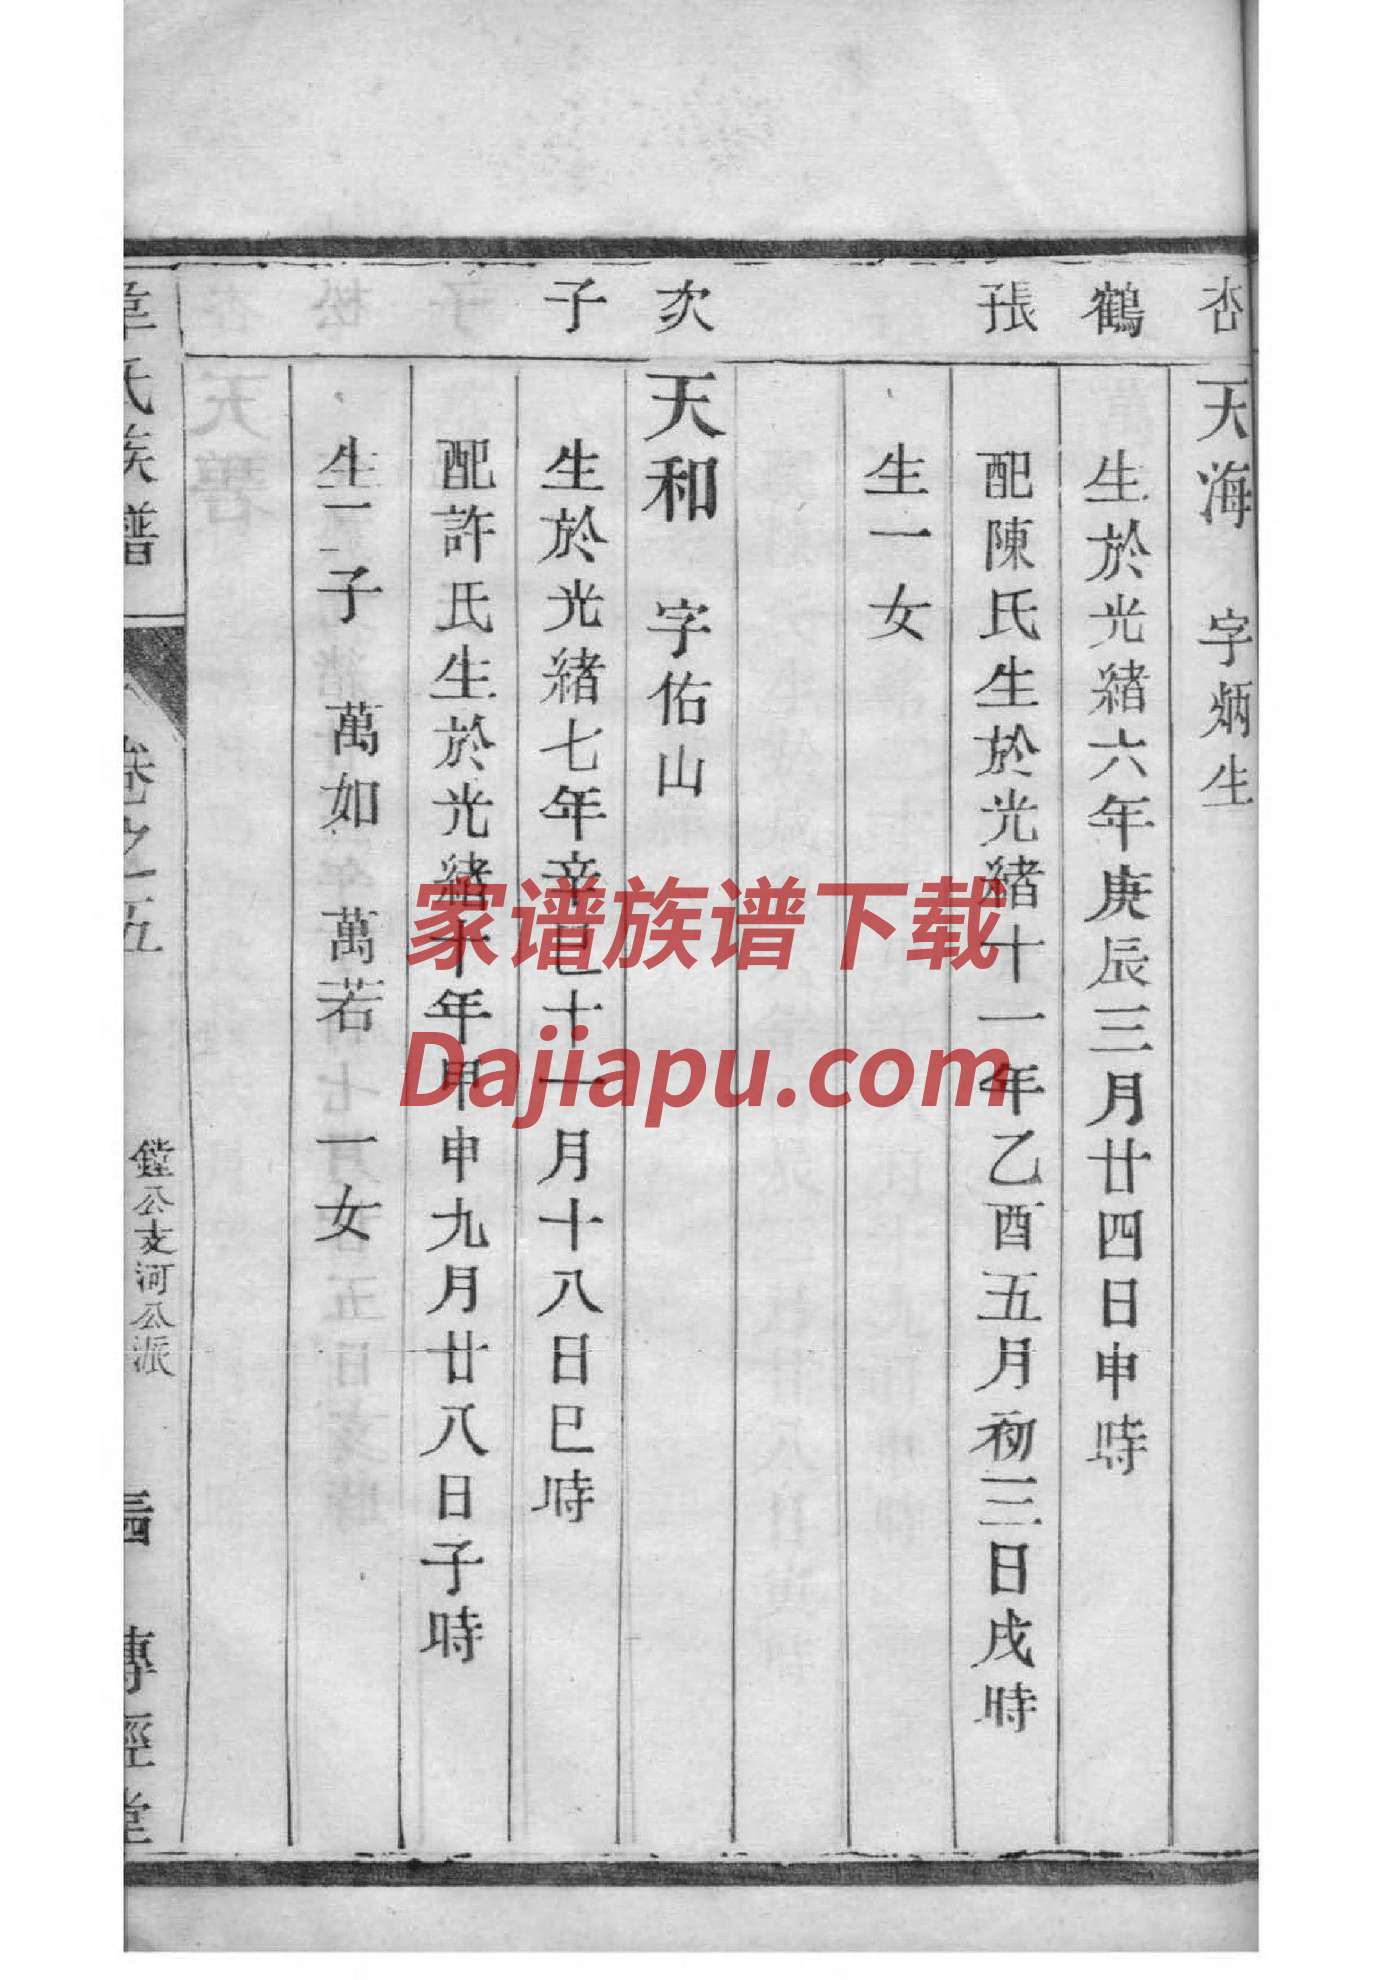 天海 字炳生
鶴 生於光緒六年庚辰三月廿四日申時
張 配陳氏生於光緒十一年乙酉五月初三日戌時
生一女
次 天和 字佑山
子 生於光緒七年辛巳十一月十八日巳時
配許氏生於光緒十年甲申九月廿八日子時
生二子 萬如 萬若 一女
韋氏族譜 卷之五 鏜公支河公派 傳經堂
家谱族谱下载
Dajiapu.com